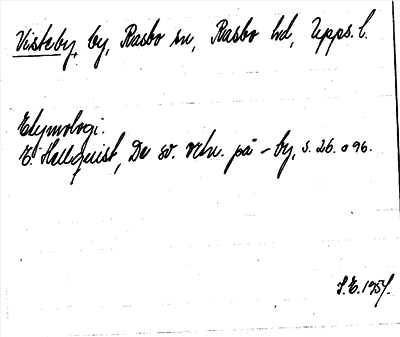 Visteby, by, Rasbo sn, Rasbo hd, Upps. l.
Etymologi.
E. Hellquist, De sv. ortn. på -by, s. 26. o 96.
S.E. 1954.